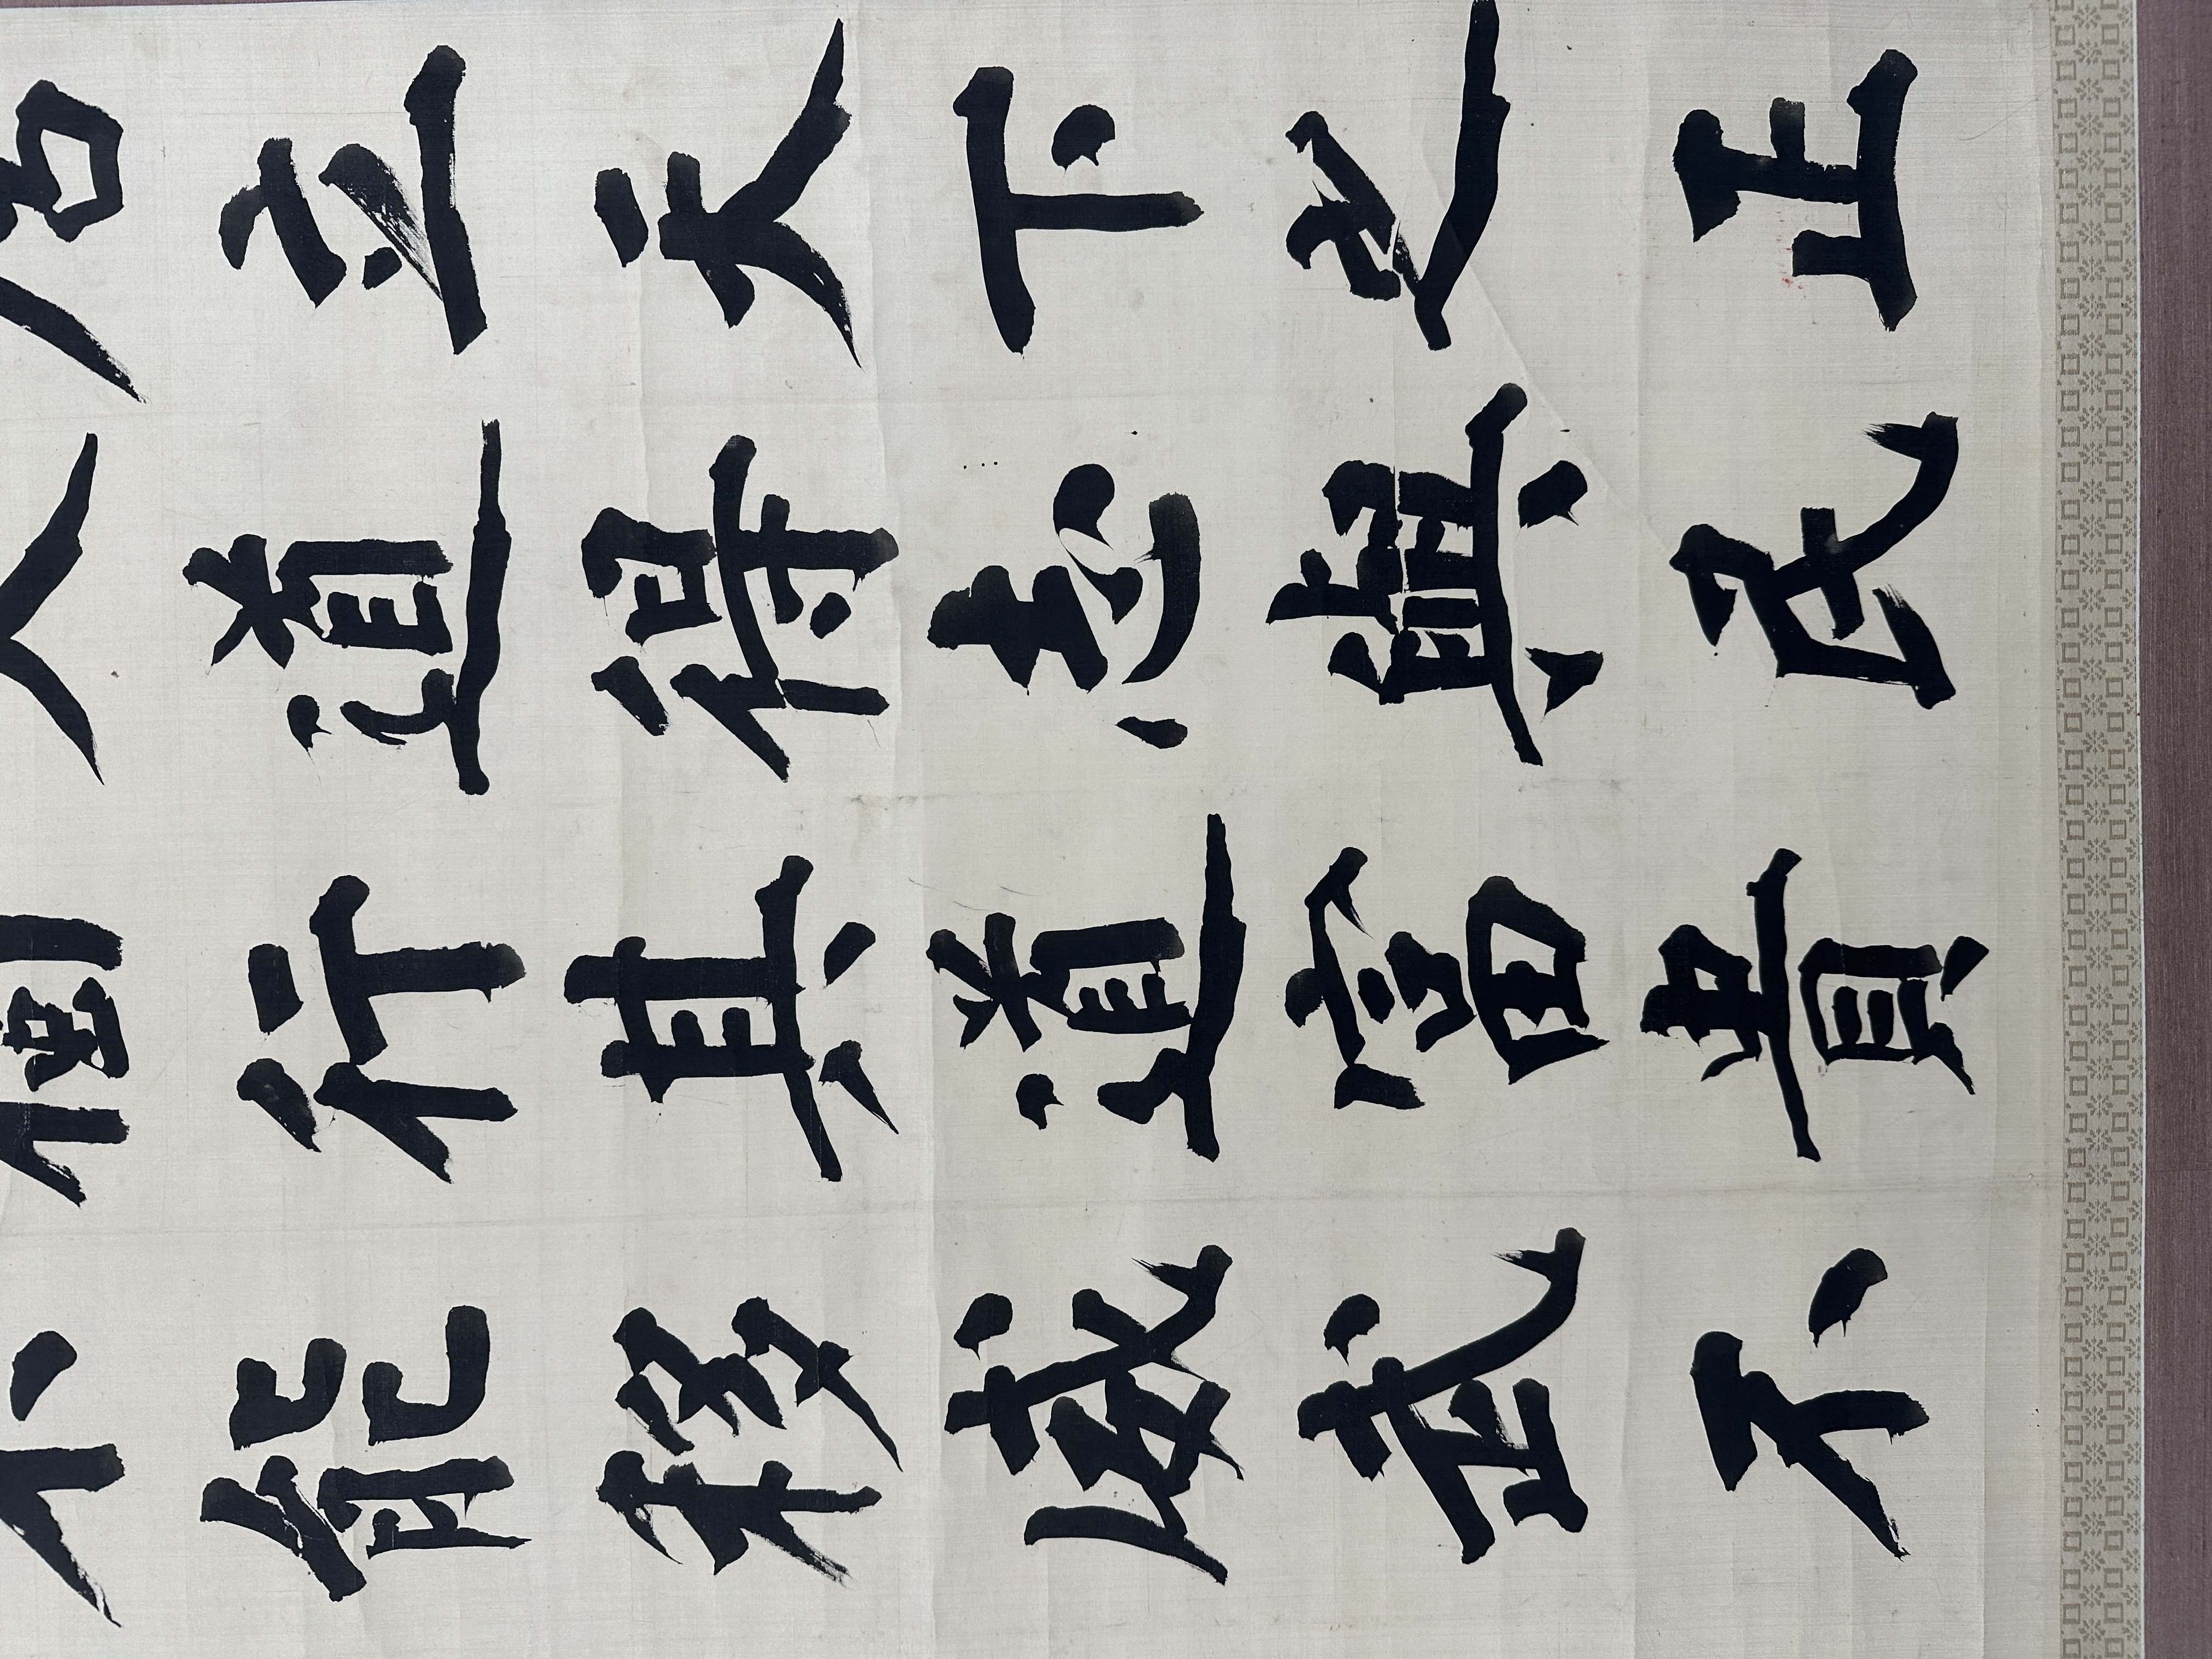 居立天下之正
大道得志與民
獨行其道富貴
不能移威武不